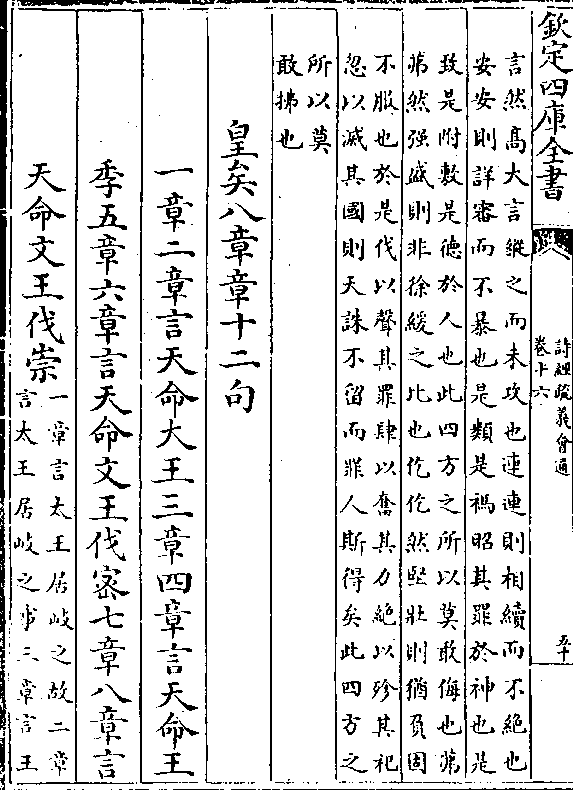 欽定四庫全書
詩經疏義會通
卷十六
五十
言然高大言縱之而未攻也連連則相續而不絶也
安安則詳審而不暴也是類是禡昭其罪於神也是
致是附敷是德於人也此四方之所以莫敢侮也茀
茀然强盛則非徐緩之比也仡仡然堅壯則猶負固
不服也於是伐以聲其罪肆以奮其力絶以殄其祀
忽以滅其國則天誅不留而罪人斯得矣此四方之
所以莫
敢拂也
皇矣八章章十二句
一章二章言天命大王三章四章言天命王
季五章六章言天命文王伐密七章八章言
天命文王伐崇
一章言太王居岐之故二章
言太王居岐之事三章言王